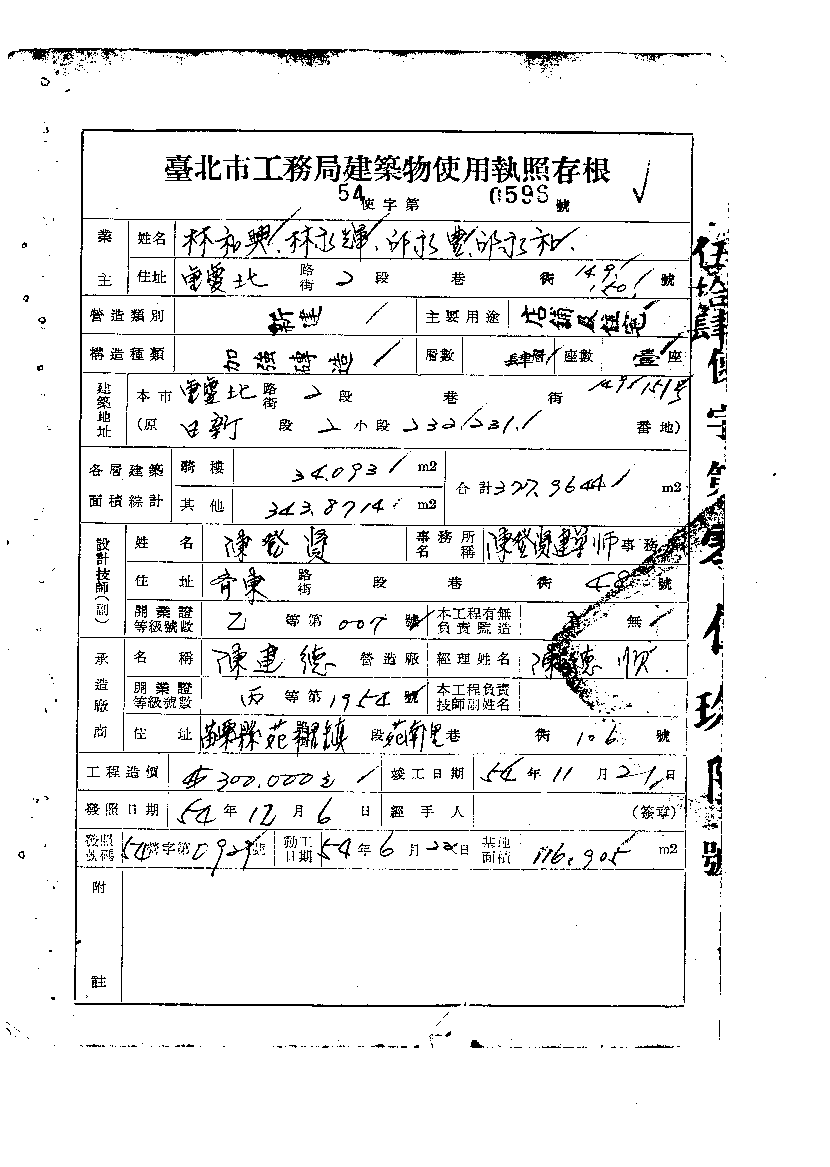 臺北市工務局建築物使用執照存根
54使字第0598號
業主 姓名 林永興、林永輝、邱永豊、邱永和
住址 重慶北路街2段 巷 街149,150,號
營造類別 新建 主要用途 店鋪及住宅
構造種類 加強磚造 層數 座數 壹座
建築地址 本市 重慶北路街2段 巷 街149,151号
(原 日新段2小段232,231, 番地)
各層建築面積綜計 騎樓 34.093 m2 合計377.9644 m2
其他 343.8714 m2
設計技師(副) 姓名 陳登賢 事務所名稱 陳登賢建筑師事務
住址 青東路街 段 巷 街48號
開業證等級號數 乙等第007號 本工程有無負責監造 無
承造廠商 名稱 陳建德營造廠 經理姓名 陳德順
開業證等級號數 丙等第1954號 本工程負責技師副姓名
住址 苗栗縣苑裡鎮 段苑南里巷 街106號
工程造價 $300.000元 竣工日期 54年11月21日
發照日期 54年12月6日 經手人 (簽章)
發照號碼 54營字第0929號 動工日期 54年6月22日 基地面積 116.905 m2
附註
伍拾肆使字第零伍玖號